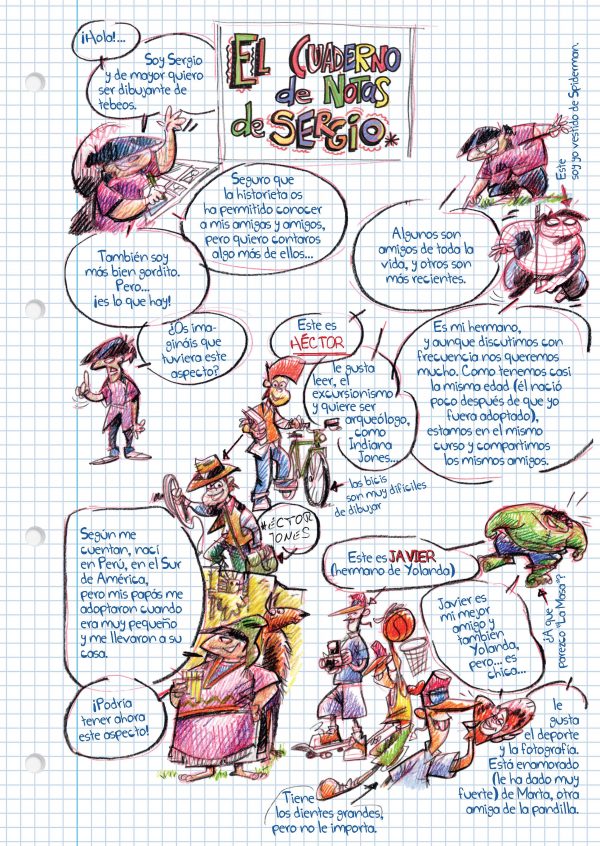 EL CUADERNO
de NOTAS
de SERGIO
¡Hola!...
Soy Sergio
y de mayor quiero
ser dibujante de
tebeos.
Seguro que
la historieta os
ha permitido conocer
a mis amigas y amigos,
pero quiero contaros
algo más de ellos...
Este
soy yo vestido de Spiderman.
Algunos son
amigos de toda la
vida, y otros son
más recientes.
También soy
más bien gordito.
Pero...
¡es lo que hay!
¿Os ima-
gináis que
tuviera este
aspecto?
Este es
HÉCTOR
le gusta
leer, el
excursionismo
y quiere ser
arqueólogo,
como
Indiana
Jones...
Es mi hermano,
y aunque discutimos con
frecuencia nos queremos
mucho. Como tenemos casi
la misma edad (él nació
poco después de que yo
fuera adoptado),
estamos en el mismo
curso y compartimos
los mismos amigos.
las bicis
son muy difíciles
de dibujar
HÉCTOR
JONES
Según me
cuentan, nací
en Perú, en el Sur
de América,
pero mis papás me
adoptaron cuando
era muy pequeño
y me llevaron a su
casa.
¡Podría
tener ahora
este aspecto!
Este es JAVIER
(hermano de Yolanda)
¿A que
parezco "La Masa"?
Javier es
mi mejor
amigo y
también
Yolanda,
pero... es
chica...
le
gusta
el deporte
y la fotografía.
Está enamorado
(le ha dado muy
fuerte) de Marta, otra
amiga de la pandilla.
Tiene
los dientes grandes,
pero no le importa.